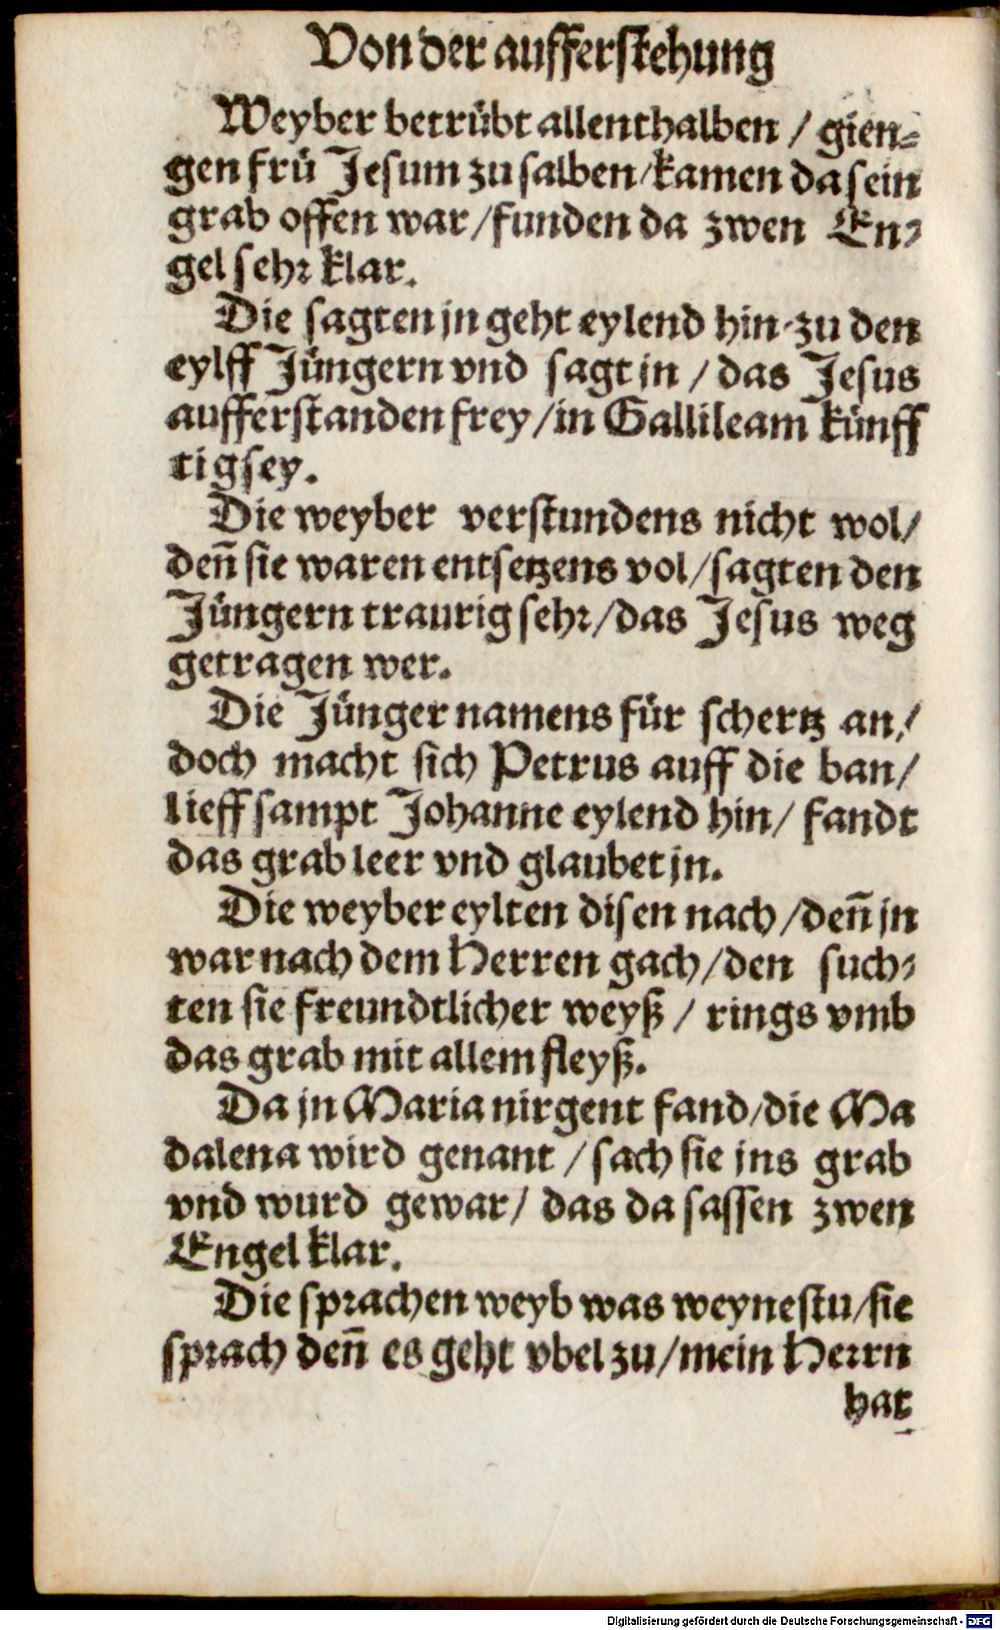 Von der aufferstehung
Weyber betrübt allenthalben / gien-
gen frü Jesum zu salben / kamen da sein
grab offen war / funden da zwen En-
gel sehr klar.
Die sagten jn geht eylend hin / zu den
eylff Jüngern vnd sagt jn / das Jesus
aufferstanden frey / in Gallileam künff
tig sey.
Die weyber verstundens nicht wol /
deñ sie waren entsetzens vol / sagten den
Jüngern traurig sehr / das Jesus weg
getragen wer.
Die Jünger namens für schertz an /
doch macht sich Petrus auff die ban /
lieff sampt Johanne eylend hin / fandt
das grab leer vnd glaubet jn.
Die weyber eylten disen nach / deñ jn
war nach dem Herren gach / den such-
ten sie freundtlicher weyß / rings vmb
das grab mit allem fleyß.
Da jn Maria nirgent fand / die Ma
dalena wird genant / sach sie jns grab
vnd wurd gewar / das da sassen zwen
Engel klar.
Die sprachen weyb was weynestu / sie
sprach deñ es geht vbel zu / mein Herrn
hat
Digitalisierung gefördert durch die Deutsche Forschungsgemeinschaft - DFG